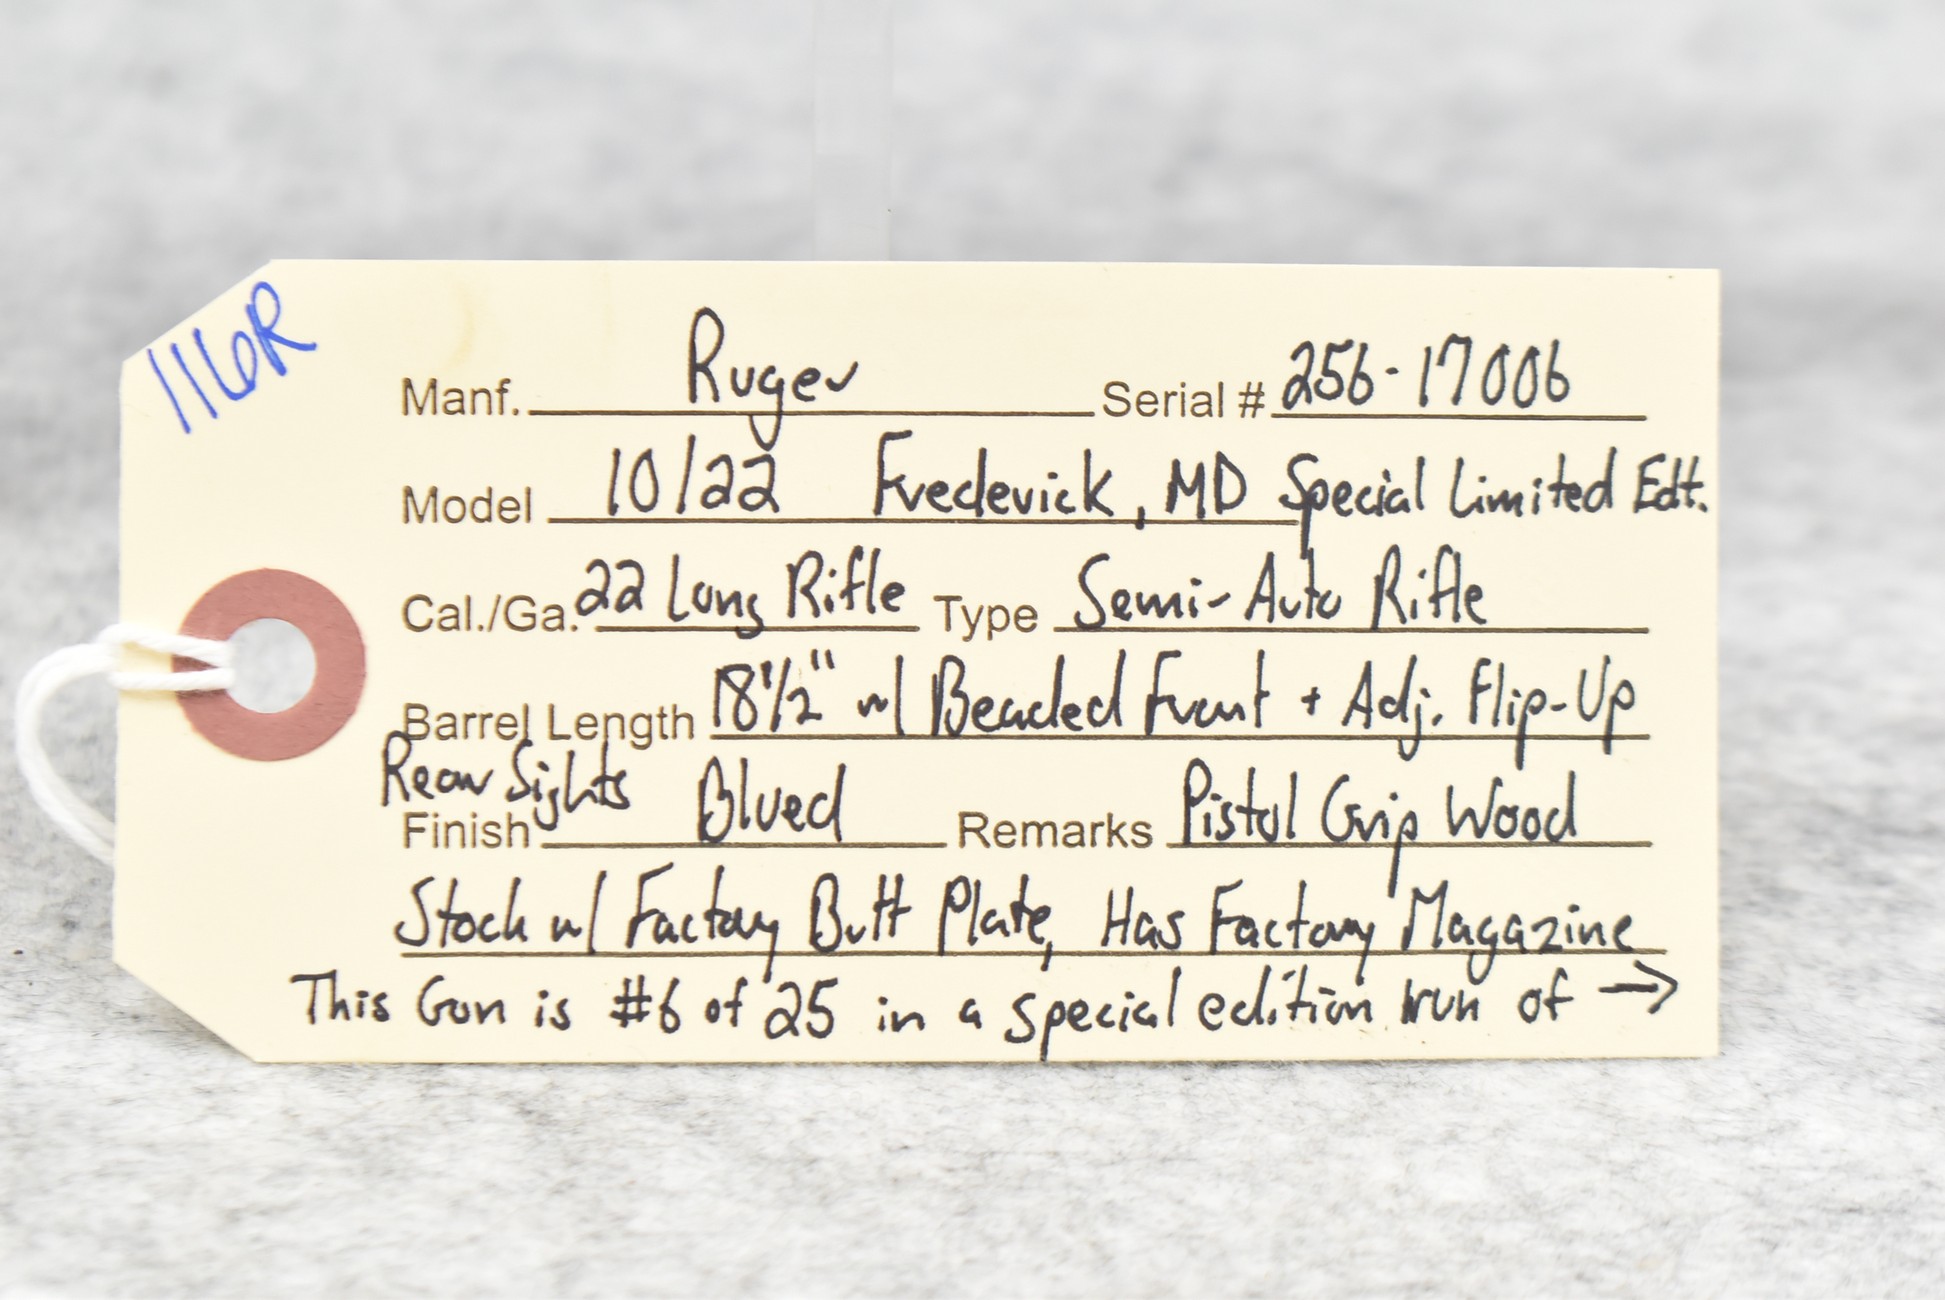 1116R
Manf. Ruger Serial # 256-17006
Model 10/22 Frederick, MD Special Limited Edt.
Cal./Ga. 22 Long Rifle Type Semi-Auto Rifle
Barrel Length 18 1/2" w/ Beaded Front + Adj. Flip-Up
Rear Sights
Finish Blued Remarks Pistol Grip Wood
Stock w/ Factory Butt Plate, Has Factory Magazine
This Gun is #6 of 25 in a special edition run of →